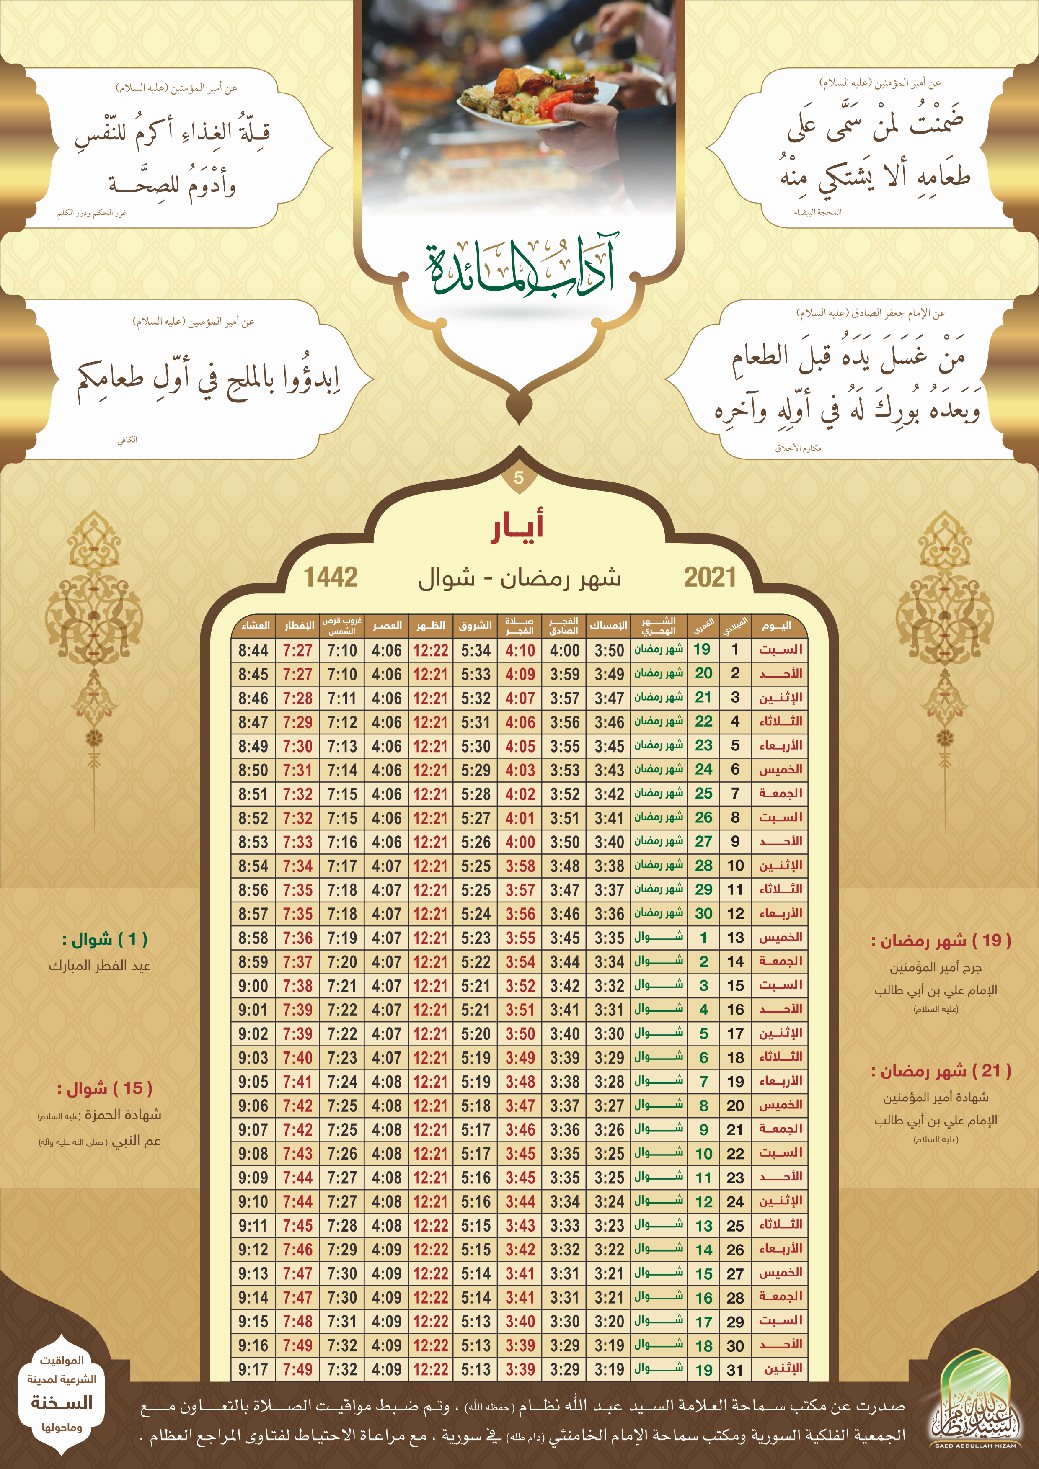 عن أمير المؤمنين (عليه السلام)
ضَمنْتُ لمنْ سَمَّى عَلَى
طعَامِهِ ألا يَشتكي مِنْهُ
المحجة البيضاء
عن أمير المؤمنين (عليه السلام)
قِلّةُ الغِذاءِ أكرمُ للنّفْسِ
وأدْوَمُ للصِحَّـة
غرر الحكم ودرر الكلم
آدابُ المائدة
عن الإمام جعفر الصادق (عليه السلام)
مَنْ غَسَلَ يَدَهُ قبلَ الطعامِ
وَبَعدَهُ بُورِكَ لَهُ في أوّلِهِ وآخرِه
مكارم الأخلاق
عن أمير المؤمنين (عليه السلام)
اِبدؤُوا بالملحِ في أوّلِ طعامِكم
الكافي
5
أيـار
2021 شهر رمضان - شوال 1442
اليـوم الميلادي القمري الشـهر الهجري الإمساك الفجـر الصادق صـلاة الفجـر الشروق الظـهر العصـر غروب قرص الشمس الإفطار العشاء
السبت 1 19 شهر رمضان 3:50 4:00 4:10 5:34 12:22 4:06 7:10 7:27 8:44
الأحـد 2 20 شهر رمضان 3:49 3:59 4:09 5:33 12:21 4:06 7:10 7:27 8:45
الإثنين 3 21 شهر رمضان 3:47 3:57 4:07 5:32 12:21 4:06 7:11 7:28 8:46
الثـلاثاء 4 22 شهر رمضان 3:46 3:56 4:06 5:31 12:21 4:06 7:12 7:29 8:47
الأربعاء 5 23 شهر رمضان 3:45 3:55 4:05 5:30 12:21 4:06 7:13 7:30 8:49
الخميس 6 24 شهر رمضان 3:43 3:53 4:03 5:29 12:21 4:06 7:14 7:31 8:50
الجمعـة 7 25 شهر رمضان 3:42 3:52 4:02 5:28 12:21 4:06 7:15 7:32 8:51
السبت 8 26 شهر رمضان 3:41 3:51 4:01 5:27 12:21 4:06 7:15 7:32 8:52
الأحـد 9 27 شهر رمضان 3:40 3:50 4:00 5:26 12:21 4:06 7:16 7:33 8:53
الإثنين 10 28 شهر رمضان 3:38 3:48 3:58 5:25 12:21 4:07 7:17 7:34 8:54
الثـلاثاء 11 29 شهر رمضان 3:37 3:47 3:57 5:25 12:21 4:07 7:18 7:35 8:56
الأربعاء 12 30 شهر رمضان 3:36 3:46 3:56 5:24 12:21 4:07 7:18 7:35 8:57
الخميس 13 1 شـوال 3:35 3:45 3:55 5:23 12:21 4:07 7:19 7:36 8:58
الجمعـة 14 2 شـوال 3:34 3:44 3:54 5:22 12:21 4:07 7:20 7:37 8:59
السبت 15 3 شـوال 3:32 3:42 3:52 5:21 12:21 4:07 7:21 7:38 9:00
الأحـد 16 4 شـوال 3:31 3:41 3:51 5:21 12:21 4:07 7:22 7:39 9:01
الإثنين 17 5 شـوال 3:30 3:40 3:50 5:20 12:21 4:07 7:22 7:39 9:02
الثـلاثاء 18 6 شـوال 3:29 3:39 3:49 5:19 12:21 4:07 7:23 7:40 9:03
الأربعاء 19 7 شـوال 3:28 3:38 3:48 5:19 12:21 4:08 7:24 7:41 9:05
الخميس 20 8 شـوال 3:27 3:37 3:47 5:18 12:21 4:08 7:25 7:42 9:06
الجمعـة 21 9 شـوال 3:26 3:36 3:46 5:17 12:21 4:08 7:25 7:42 9:07
السبت 22 10 شـوال 3:25 3:35 3:45 5:17 12:21 4:08 7:26 7:43 9:08
الأحـد 23 11 شـوال 3:25 3:35 3:45 5:16 12:21 4:08 7:27 7:44 9:09
الإثنين 24 12 شـوال 3:24 3:34 3:44 5:16 12:21 4:08 7:27 7:44 9:10
الثـلاثاء 25 13 شـوال 3:23 3:33 3:43 5:15 12:22 4:08 7:28 7:45 9:11
الأربعاء 26 14 شـوال 3:22 3:32 3:42 5:15 12:22 4:09 7:29 7:46 9:12
الخميس 27 15 شـوال 3:21 3:31 3:41 5:14 12:22 4:09 7:30 7:47 9:13
الجمعـة 28 16 شـوال 3:21 3:31 3:41 5:14 12:22 4:09 7:30 7:47 9:14
السبت 29 17 شـوال 3:20 3:30 3:40 5:13 12:22 4:09 7:31 7:48 9:15
الأحـد 30 18 شـوال 3:19 3:29 3:39 5:13 12:22 4:09 7:32 7:49 9:16
الإثنين 31 19 شـوال 3:19 3:29 3:39 5:13 12:22 4:09 7:32 7:49 9:17
( 19 ) شهر رمضان :
جرح أمير المؤمنين
الإمام علي بن أبي طالب
(عليه السلام)
( 21 ) شهر رمضان :
شهادة أمير المؤمنين
الإمام علي بن أبي طالب
(عليه السلام)
( 1 ) شوال :
عيد الفطر المبارك
( 15 ) شوال :
شهادة الحمزة (عليه السلام)
عم النبي (صلى الله عليه وآله)
المواقيت
الشرعية لمدينة
السـخنة
وماحولها
صدرت عن مكتب سماحة العلامة السيد عبد الله نظام (حفظه الله) ، وتم ضبط مواقيت الصلاة بالتعاون مع
الجمعية الفلكية السورية ومكتب سماحة الإمام الخامنئي (دام ظله) في سورية ، مع مراعاة الاحتياط لفتاوى المراجع العظام .
السيد عبد الله نظام
SAED ABDULLAH NIZAM